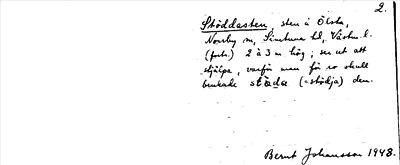 2.
Stöddasten, sten i Ölsta,
Norrby sn, Simtuna hd, Västm. l.
(forts.) 2 à 3 m hög; ser ut att
stjälpa, varför man för ro skull
brukade stöda (=stödja) den.
Bernt Johansson 1948.